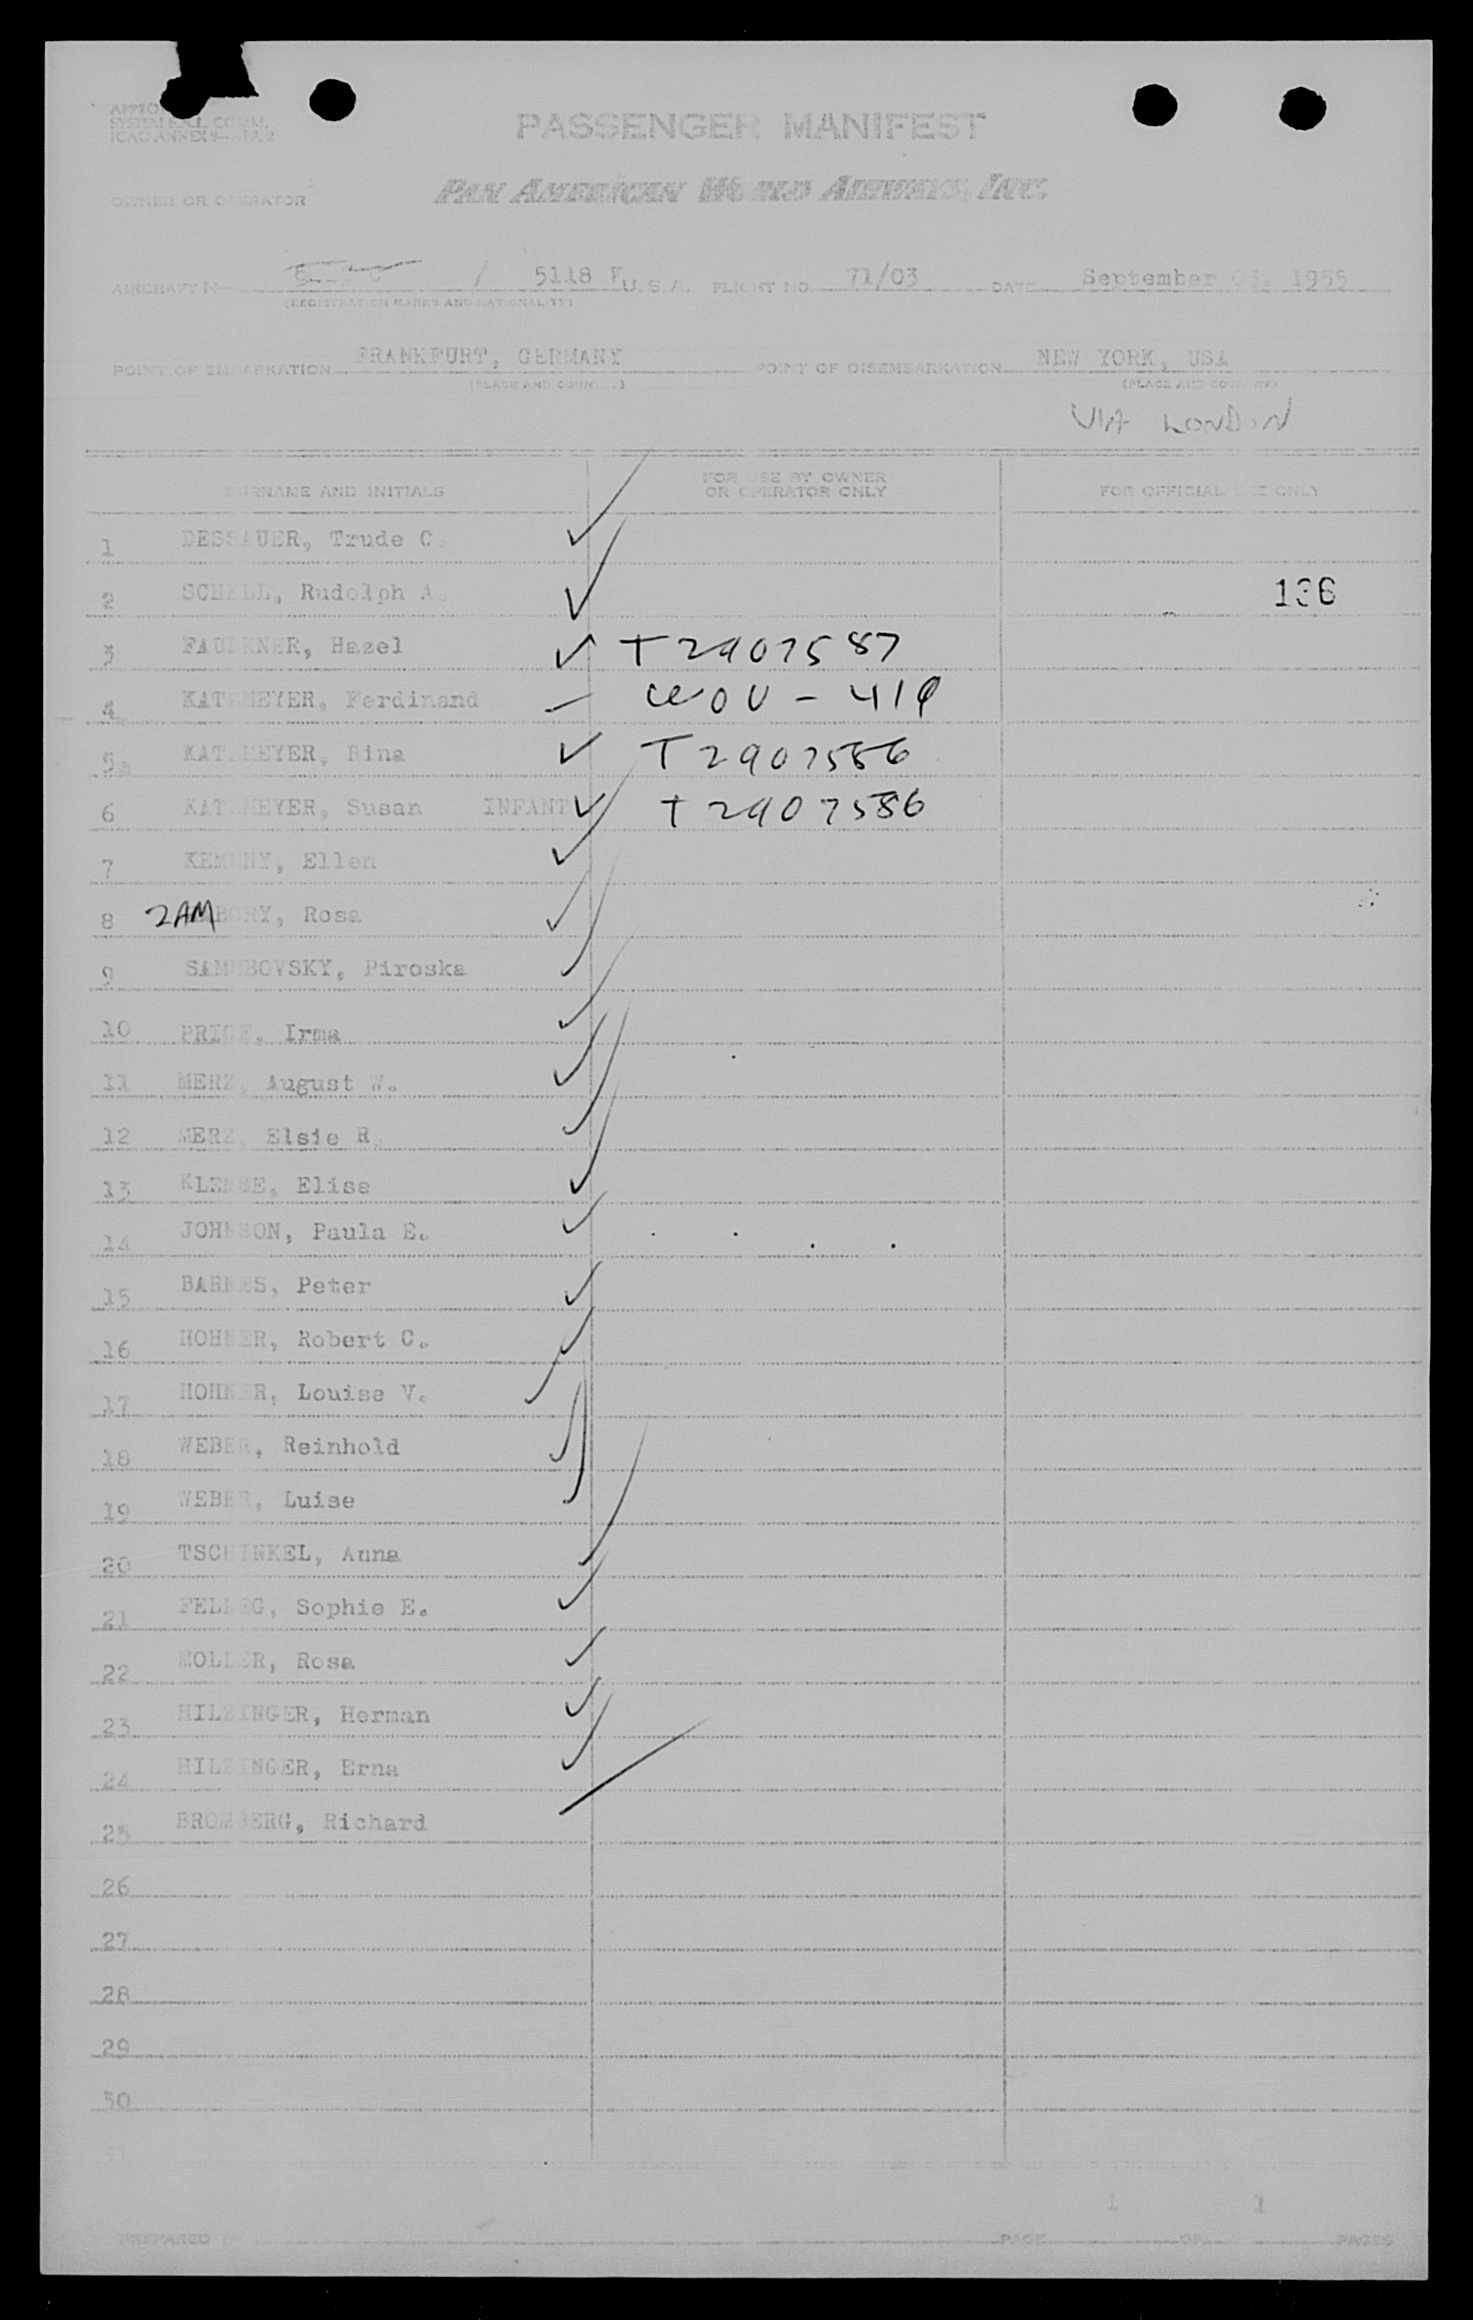 PASSENGER MANIFEST
OWNER OR OPERATOR PAN AMERICAN WORLD AIRWAYS, INC.
AIRCRAFT / 5118 U.S.A. FLIGHT NO. 71/03 DATE September 1955
(REGISTRATION MARKS AND NATIONALITY)
POINT OF EMBARKATION FRANKFURT, GERMANY POINT OF DISEMBARKATION NEW YORK, USA
(PLACE AND COUNTRY) (PLACE AND COUNTRY)
VIA LONDON
SURNAME AND INITIALS FOR USE BY OWNER OR OPERATOR ONLY FOR OFFICIAL USE ONLY
1 DESSAUER, Trude C.
2 SCHELL, Rudolph A. 136
3 FAULKNER, Hazel T2907587
4 Ferdinand
5 T2907586
6 Susan INFANT T2907586
7 Ellen
8 2AM Rosa
9 Piroska
10 PRICE, Irma
11 MERZ, August W.
12 MERZ, Elsie R.
13 Elise
14 JOHNSON, Paula E.
15 BARNES, Peter
16 HOHNER, Robert C.
17 HOHNER, Louise V.
18 WEBER, Reinhold
19 WEBER, Luise
20 TSCHINKEL, Anna
21 Sophie E.
22 MOLLER, Rosa
23 Herman
24 Erna
25 BROMBERG, Richard
26
27
28
29
30
1 1
PREPARED PAGE OF PAGES